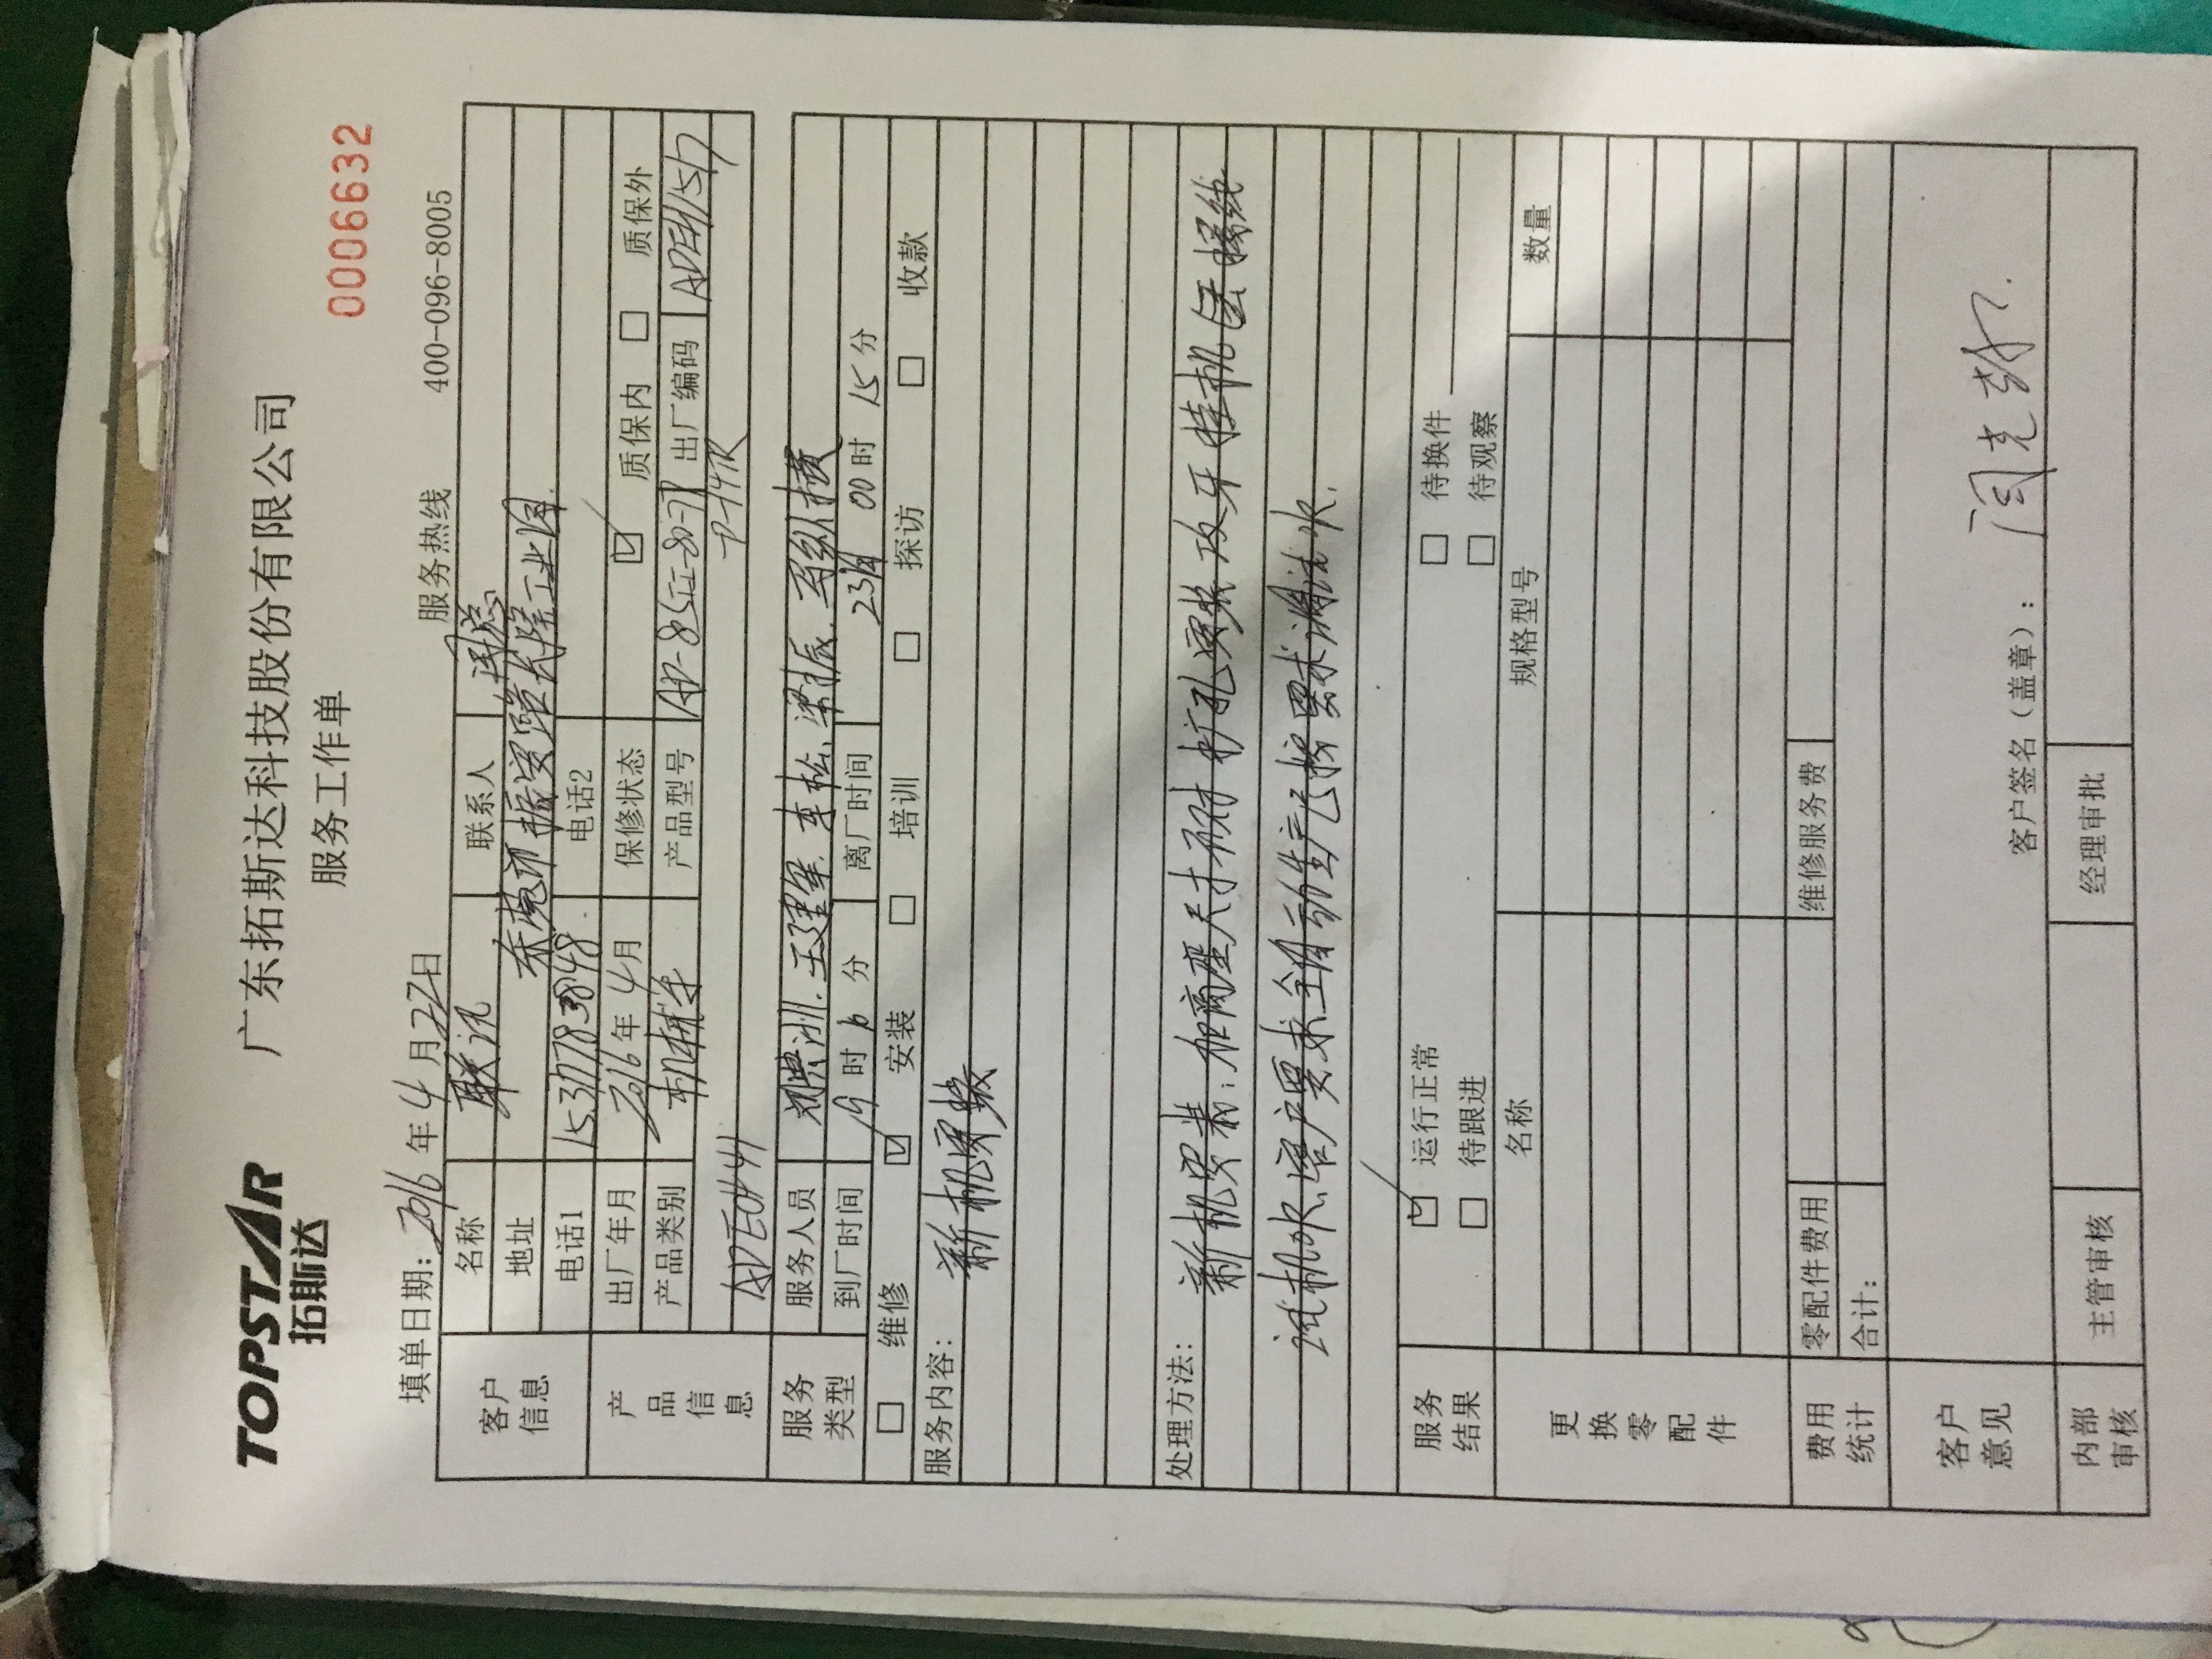 TOPSTAR
拓斯达
广东拓斯达科技股份有限公司
服务工作单
0006632
填单日期: 2016 年 4 月 22 日 服务热线 400-096-8005
客户信息
名称 联讯 联系人
地址 东莞市振安路 工业园
电话1 电话2
产品信息
出厂年月 2016 年 4 月 保修状态 ☑ 质保内 □ 质保外
产品类别 机械手 产品型号 出厂编码 ADEH157
ADE0441
服务类型
服务人员 王建军.
到厂时间 19 时 分 离厂时间 00 时 15 分
□ 维修 ☑ 安装 □ 培训 □ 探访 □ 收款
服务内容:
新机安装
处理方法:
新机安装: 扩孔 攻牙 挂机 接线
试机OK. 客户要求全自动生产 调试OK.
服务结果
☑ 运行正常 □ 待换件
□ 待跟进 □ 待观察
更换零配件
名称 规格型号 数量
费用统计
零配件费用 维修服务费
合计:
客户意见
客户签名（盖章）:
内部审核
主管审核 经理审批